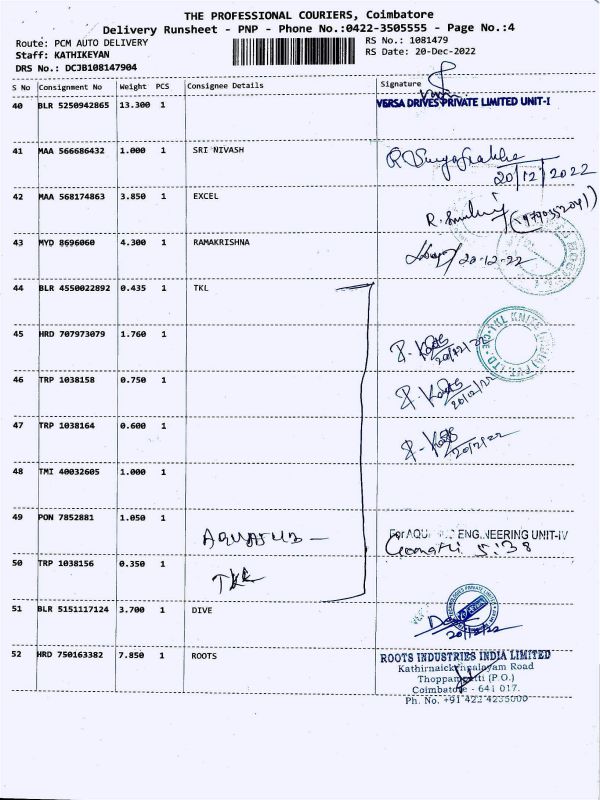 THE PROFESSIONAL COURIERS, Coimbatore
Delivery Runsheet - PNP - Phone No.:0422-3505555 - Page No.:4
Route: PCM AUTO DELIVERY
RS No.: 1081479
Staff: KATHIKEYAN
RS Date: 20-Dec-2022
DRS No.: DCJB108147904
S No Consignment No Weight PCS Consignee Details Signature
40 BLR 5250942865 13.300 1 VERSA DRIVES PRIVATE LIMITED UNIT-I
41 MAA 566686432 1.000 1 SRI NIVASH
20/12/2022
42 MAA 568174863 3.850 1 EXCEL
43 MYD 8696060 4.300 1 RAMAKRISHNA 20-12-22
44 BLR 4550022892 0.435 1 TKL
45 HRD 707973079 1.760 1
20/12/22
46 TRP 1038158 0.750 1
20/12/22
47 TRP 1038164 0.600 1
20/12/22
48 TMI 40032605 1.000 1
49 PON 7852881 1.050 1
For AQU ENGINEERING UNIT-IV
Gomathi 5:38
50 TRP 1038156 0.350 1
51 BLR 5151117124 3.700 1 DIVE
20/12/22
52 HRD 750163382 7.850 1 ROOTS ROOTS INDUSTRIES INDIA LIMITED
Kathirnaickenpalayam Road
Thoppampatti (P.O.)
Coimbatore - 641 017.
Ph. No. +91 422 4235000